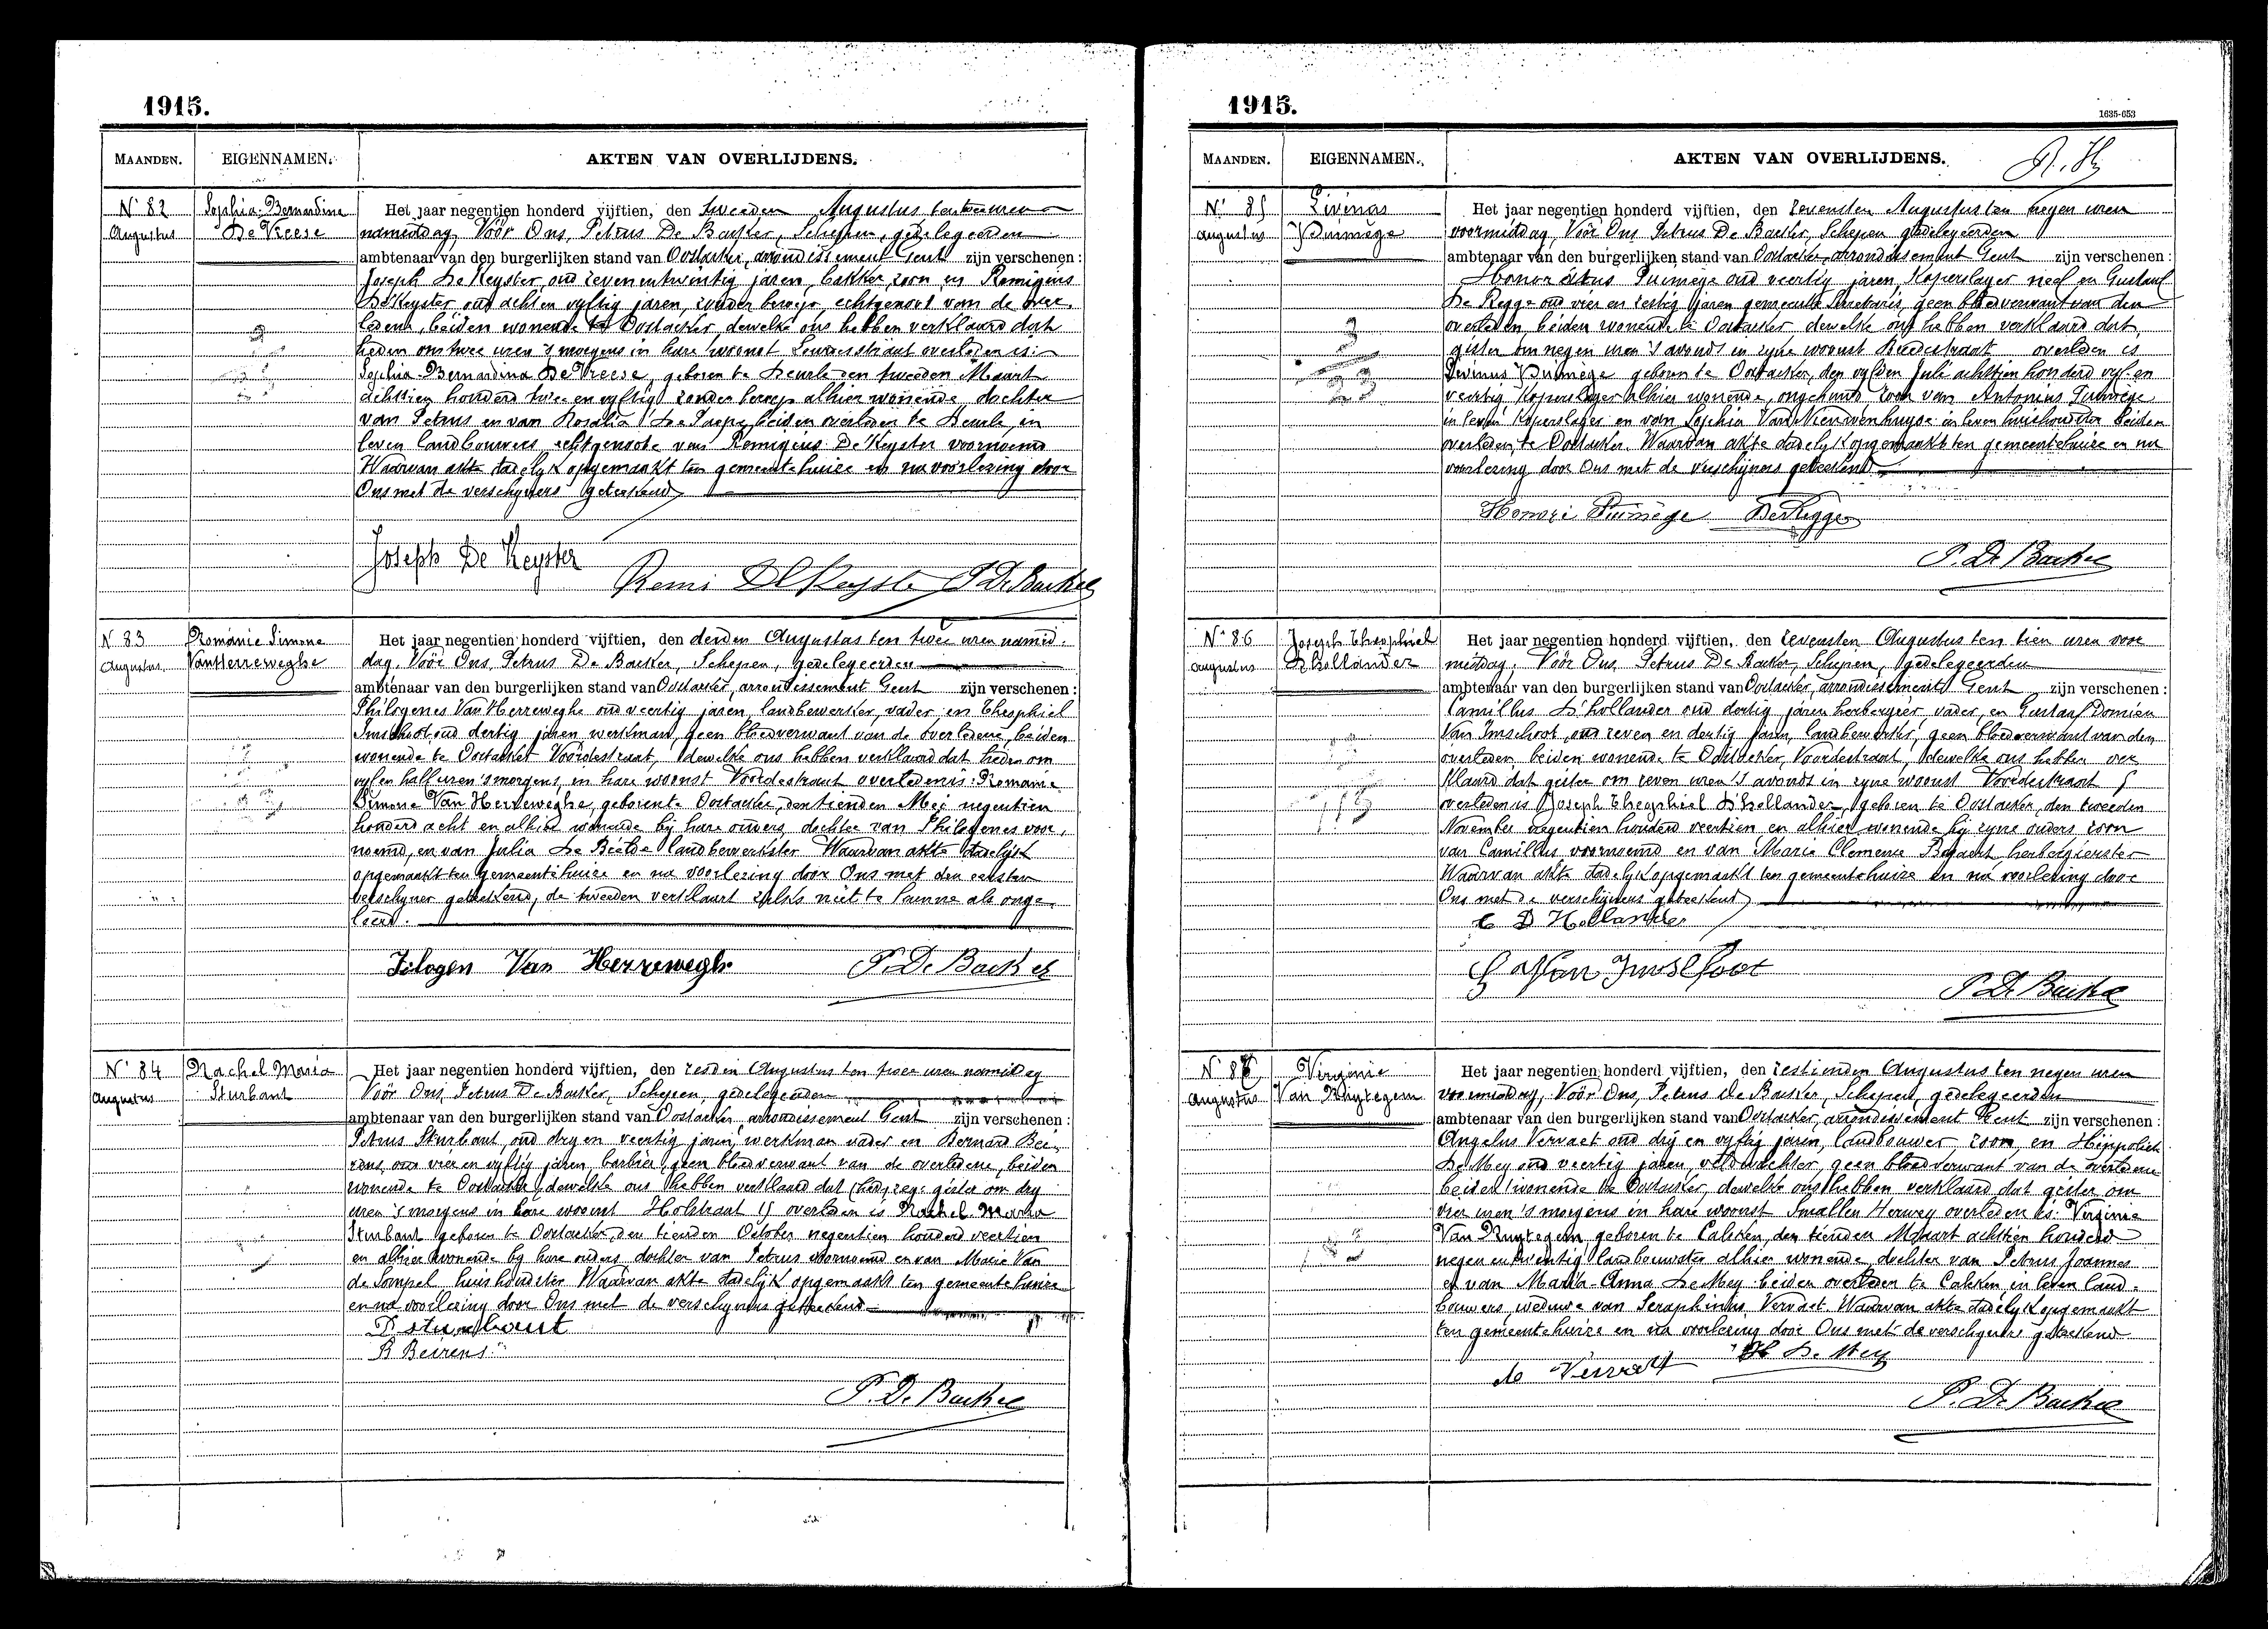 1915.
MAANDEN. EIGENNAMEN. AKTEN VAN OVERLIJDENS.
N° 82 Augustus
Sophia-Bernardina De Vreese
Het jaar negentien honderd vijftien, den tweeden Augustus ten twee uren
namiddag, Vóór Ons, Petrus De Backer, Schepen, gedelegeerden
ambtenaar van den burgerlijken stand van Oostacker, arrondissement Gent zijn verschenen:
Joseph De Keyster, oud zevenentwintig jaren, bakker, zoon en Remigius
De Keyster oud acht en vyftig jaren, zonder beroep, echtgenoot van de over-
ledene, beiden wonende te Oostacker, dewelke ons hebben verklaard dat
heden om twee uren 's morgens in hare woonst Lourdesstraat overleden is:
Sophia-Bernardina De Vreese, geboren te Deurle den tweeden Maart
achttien honderd twee en vyftig zonder beroep alhier wonende dochter
van Petrus en van Rosalia De Paepe, beiden overleden te Deurle, in
leven landbouwers, echtgenote van Remigius De Keyster voornoemd
Waarvan akte dadelyk opgemaakt ten gemeentehuize en na voorlezing door
Ons met de verschyners geteekend
Joseph De Keyster
Remi De Keyster P. De Backer
N° 83 Augustus
Romanie Simone Van Herreweghe
Het jaar negentien honderd vijftien, den derden Augustus ten twee uren namid-
dag. Vóór Ons, Petrus De Backer, Schepen, gedelegeerden
ambtenaar van den burgerlijken stand van Oostacker, arrondissement Gent zijn verschenen:
Philogenes Van Herreweghe oud veertig jaren, landbewerker, vader, en Theophiel
Imschoot oud dertig jaren werkman, geen bloedverwant van de overledene, beiden
wonende te Oostacker Voordestraat, dewelke ons hebben verklaard dat heden om
vyf en half uren 's morgens, in hare woonst Voordestraat overleden is: Romanie
Simone Van Herreweghe, geboren te Oostacker, den tienden Mei negentien
honderd acht en alhier wonende bij hare ouders, dochter van Philogenes voor-
noemd, en van Julia De Bietde landbewerkster Waarvan akte dadelijk
opgemaakt ten gemeentehuize en na voorlezing door Ons met den eersten
verschyner geteekend, de tweeden verklaart zulks niet te kunnen als onge-
leerd.
Filogen Van Herreweghe P. De Backer
N° 84 Augustus
Rachel Maria Sturbaut
Het jaar negentien honderd vijftien, den zesden Augustus ten twee uren namiddag
Vóór Ons, Petrus De Backer, Schepen, gedelegeerden
ambtenaar van den burgerlijken stand van Oostacker, arrondissement Gent zijn verschenen:
Petrus Sturbaut, oud dry en veertig jaren, werkman vader en Bernard Bei-
rens, oud vier en vyftig jaren, barbier, geen bloedverwant van de overledene, beiden
wonende te Oostacker, dewelke ons hebben verklaard dat (hed) zege gister om dry
uren 's morgens in hare woonst Holstraat 15 overleden is Rachel Maria
Sturbaut geboren te Oostacker, den tienden October negentien honderd veertien
en alhier wonende by hare ouders, dochter van Petrus voornoemd en van Marie Van
de Sompel huishoudster Waarvan akte dadelijk opgemaakt ten gemeentehuize
en na voorlezing door Ons met de verschyners geteekend
P Sturbaut
B Beirens
P. De Backer
1915. 1635-653
MAANDEN. EIGENNAMEN. AKTEN VAN OVERLIJDENS.
N° 85 Augustus
Livinus Puimège
Het jaar negentien honderd vijftien, den zevensten Augustus ten negen uren
voormiddag, Vóór Ons Petrus De Backer, Schepen gedelegeerden
ambtenaar van den burgerlijken stand van Oostacker, arrondissement Gent zijn verschenen:
Honoratus Puimège oud veertig jaren, Koperslager neef en Gustaaf
De Regge oud vier en zestig jaren gemeente Secretaris, geen bloedverwant van den
overleden, beiden wonende te Oostacker dewelke ons hebben verklaard dat,
gister om negen uren 's avonds in zyne woonst Breedestraat overleden is
Livinus Puimège geboren te Oostacker, den vyfden Juli achttien honderd vyf en
veertig Koperslager alhier wonende, ongehuwd zoon van Antonius Puimège
in leven Koperslager en van Sophia Van Nieuwenhuyse in leven huishoudster beiden
overleden te Oostacker. Waarvan akte dadelyk opgemaakt ten gemeentehuize en na
voorlezing door Ons met de verschijners geteekend
Honoré Puimège De Regge
P. De Backer
N° 86 Augustus
Joseph Theophiel D'hollander
Het jaar negentien honderd vijftien, den zevensten Augustus ten tien uren voor
middag. Vóór Ons, Petrus De Backer, Schepen, gedelegeerden
ambtenaar van den burgerlijken stand van Oostacker, arrondissement Gent zijn verschenen:
Camillus D'hollander oud dertig jaren herbergier, vader, en Gustaaf Domien
Van Imschoot, oud zeven en dertig jaren, landbewerker, geen bloedverwant van den
overleden, beiden wonende te Oostacker, Voordestraat, dewelke ons hebben ver
klaard dat gister om zeven uren 's avonds in zyne woonst Voordestraat 5
overleden is Joseph Theophiel D'hollander, geboren te Oostacker, den tweeden
November negentien honderd veertien en alhier wonende bij zyne ouders zoon
van Camillus voornoemd en van Marie Clemence Bogaert herbergierster
Waarvan akte dadelyk opgemaakt ten gemeentehuize en na voorlezing door
Ons met de verschijners geteekend
C D Hollander
G Van Imschoot
P. De Backer
N° 87 Augustus
Virginie Van Kuytegem
Het jaar negentien honderd vijftien, den zestienden Augustus ten negen uren
voormiddag, Vóór Ons, Petrus De Backer, Schepen, gedelegeerden
ambtenaar van den burgerlijken stand van Oostacker, arrondissement Gent zijn verschenen:
Angelus Vervaet oud dry en vyftig jaren, landbouwer zoon, en Hippoliet
De Mey oud veertig jaren, veldwachter, geen bloedverwant van de overledene
beiden wonende te Oostacker, dewelke ons hebben verklaard dat gister om
vier uren 's morgens in hare woonst Smallen Heirweg overleden is: Virginie
Van Kuytegem geboren te Calcken, den tienden Maart achttien honderd
negen en twentig landbouwster alhier wonende dochter van Petrus Joannes
en van Maria-Anna De Mey beiden overleden te Calcken in leven land-
bouwers, weduwe van Seraphinus Vervaet. Waarvan akte dadelyk opgemaakt
ten gemeentehuize en na voorlezing door Ons met de verschyners geteekend
Vervaet H De Mey
P. De Backer